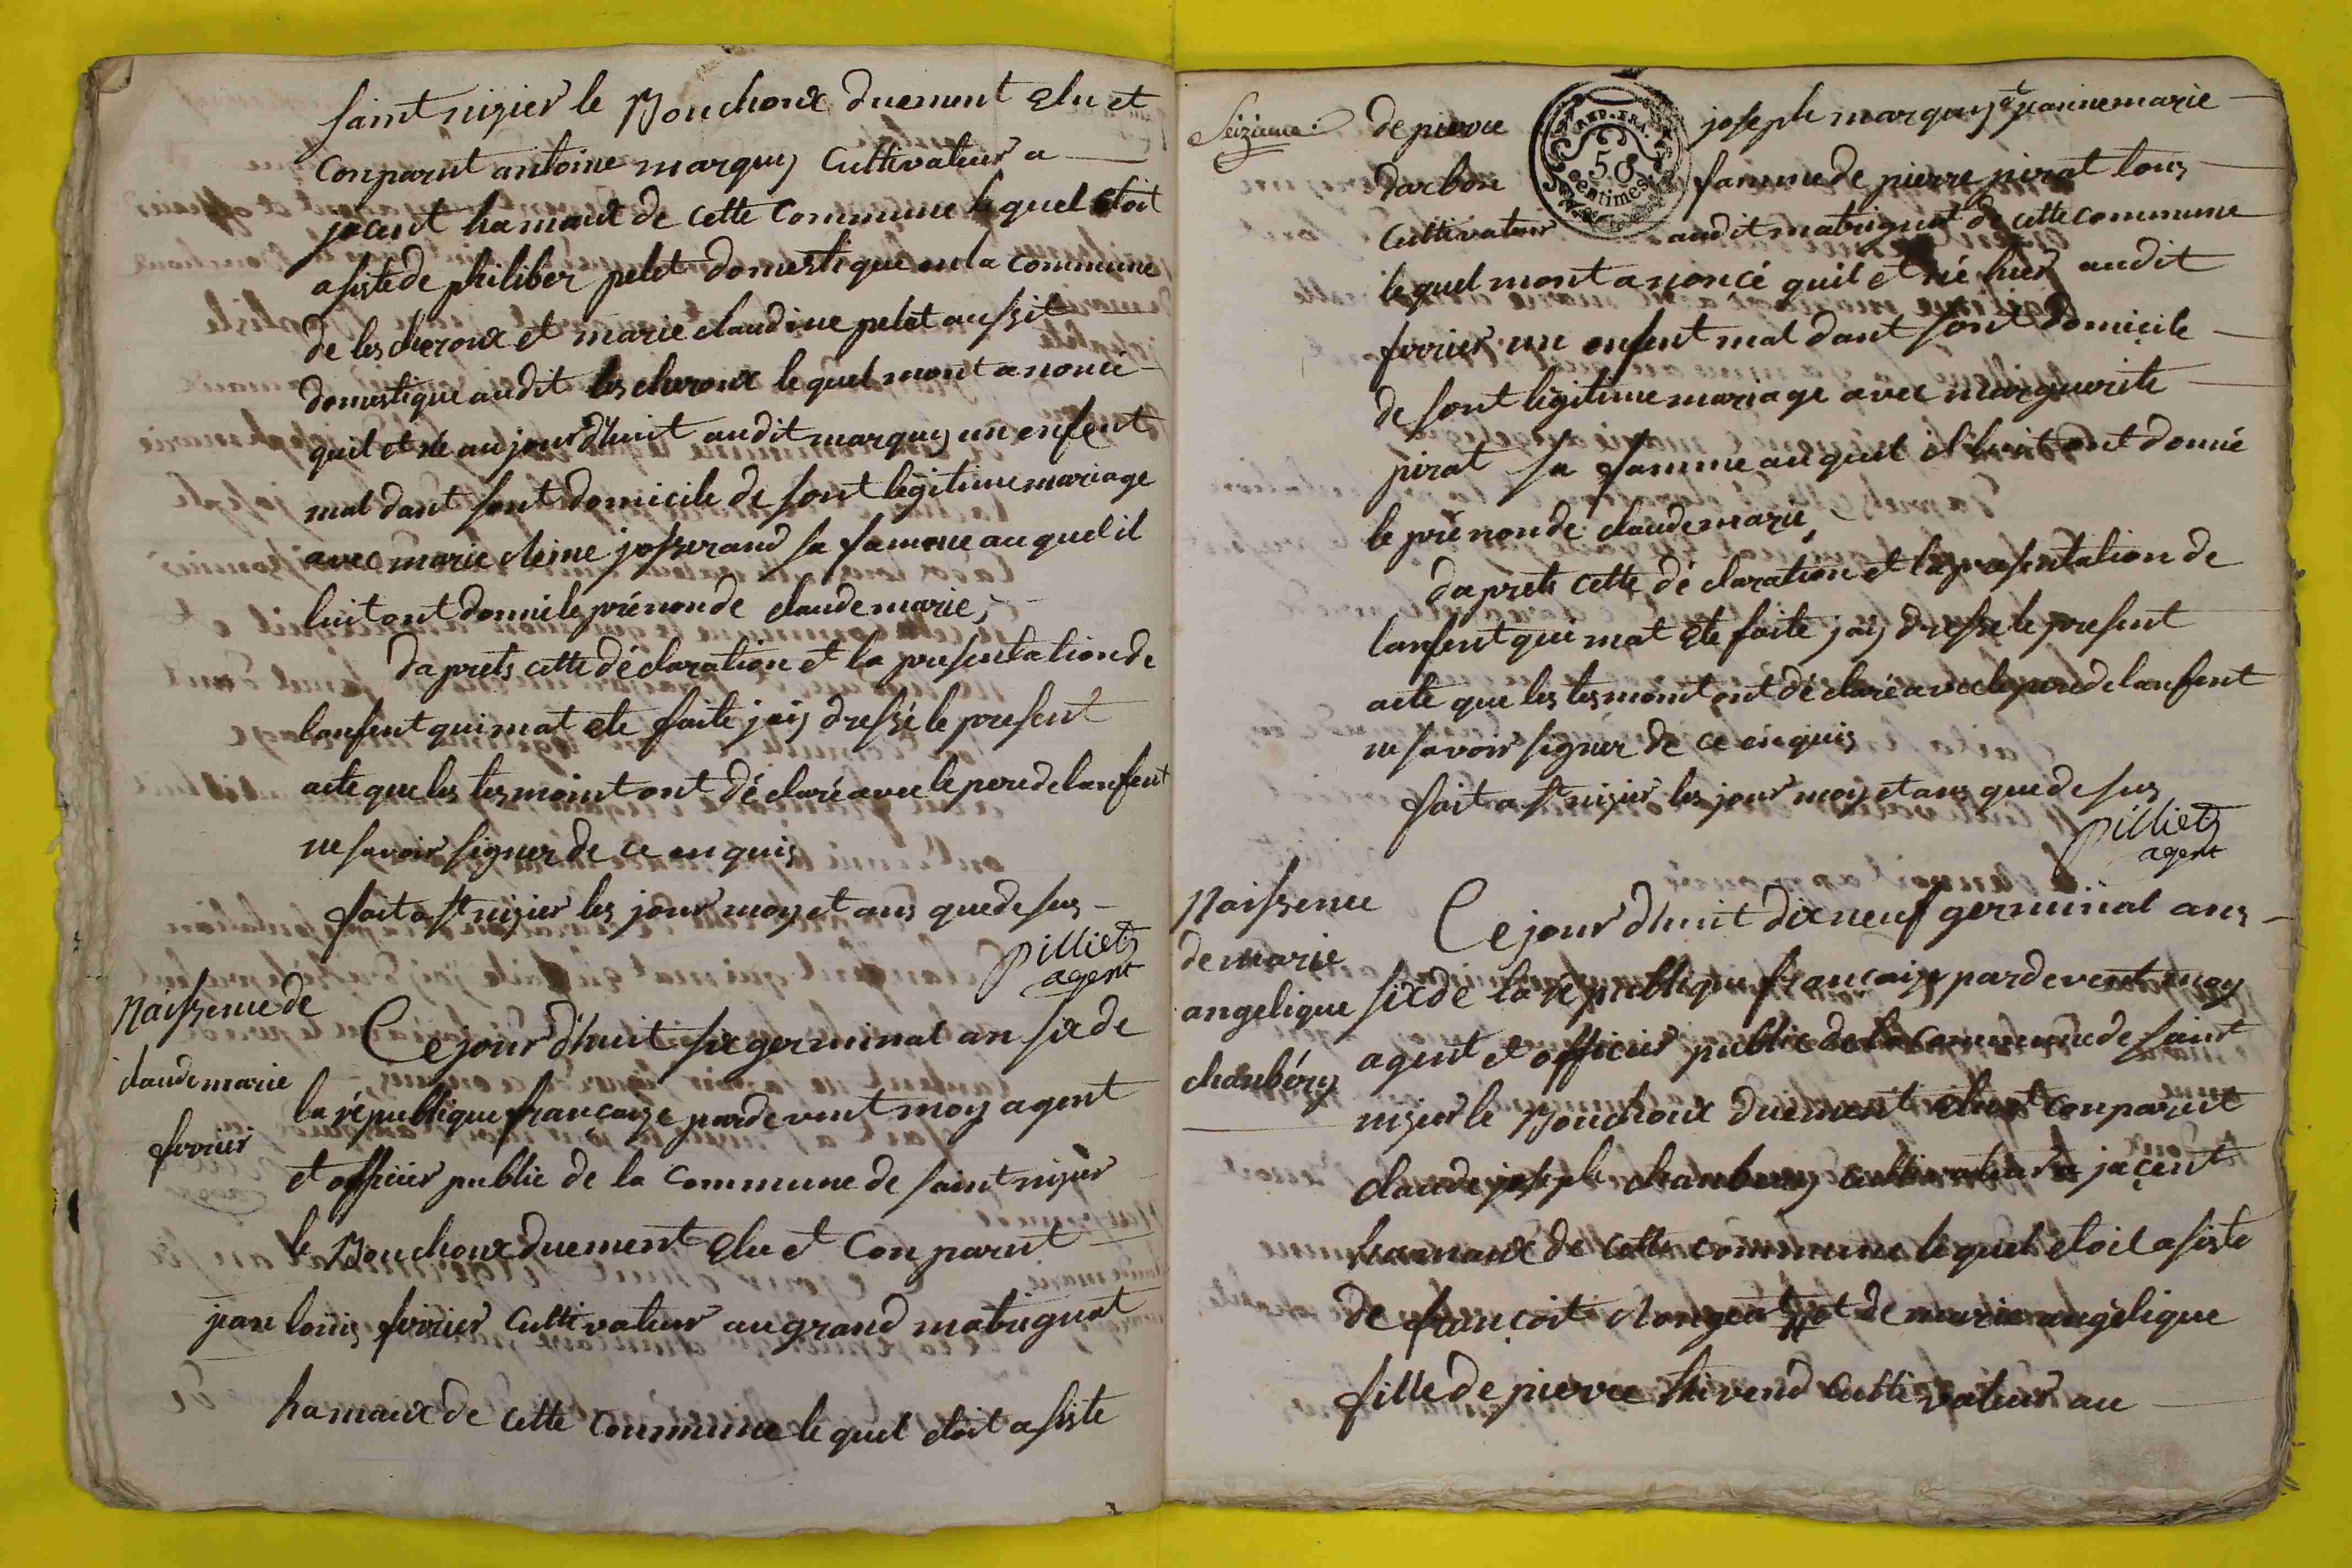 saint nizier le Bouchoux duement elu et
conparut antoine marquis cultivateur a
jacent hamaux de cette commune lequel etoit
asiste de philiber pelet domestique en la commune
de lescheroux et marie claudine pelet aussit
domestique audit lescheroux lequel mont anoncé
quil et né aujourdhuit audit marquis un enfent
mal dant sont domicile de sont legitime mariage
avec marie josserand sa famme auquel il
luit ont donné le prénon de claude marie
daprets cette déclaration et la presentation de
lanfent qui mat ete faite jais dressé le present
acte que les tesmoint ont déclaré avec le pere de lanfent
ne savoir signer de ce enquis
fait a st nizier les jour moy et ans que desus
pilliet
agent
Naissence de
claude marie
fevrier
Ce jour dhuit six germinal an six de
la république françaize pardevent moy agent
et officier public de la commune de saint nizier
le Bouchoux duement elu et conparut
jean louis fevrier cultivateur au grand matrignat
hamaux de cette commune lequel etoit asiste
Seizieme
de pierre joseph marquis et jeannemarie
darbon famme de pierre pirat tous
REP. FRA.
50
centimes
cultivateur audit matrignat de cette commune
lequel mont anoncé quil et né hier audit
fevrier un enfent mal dant sont domicile
de sont legitime mariage avec marguerite
pirat sa famme auquel il luit ont donné
le prénon de claude marie
daprets cette déclaration et la presentation de
lanfent qui mat ete faite jais dresse le present
acte que les tesmoint ont déclaré avec le pere de lanfent
ne savoir signer de ce enquis
fait a st nizier les jour moy et ans que desus
pilliet
agent
Naissence
de marie
angelique
chanbéry
Ce jour dhuit dixneuf germinal ans
six de la république françaize pardevent moy
agent et officier public de la commune de saint
nizier le Bouchoux duement elu et conparut
claude joseph chanbery cultivateur a jacent
hamaux de cette commune lequel etoit asiste
de françoit et de marie angélique
fille de pierre thivend cultivateur au